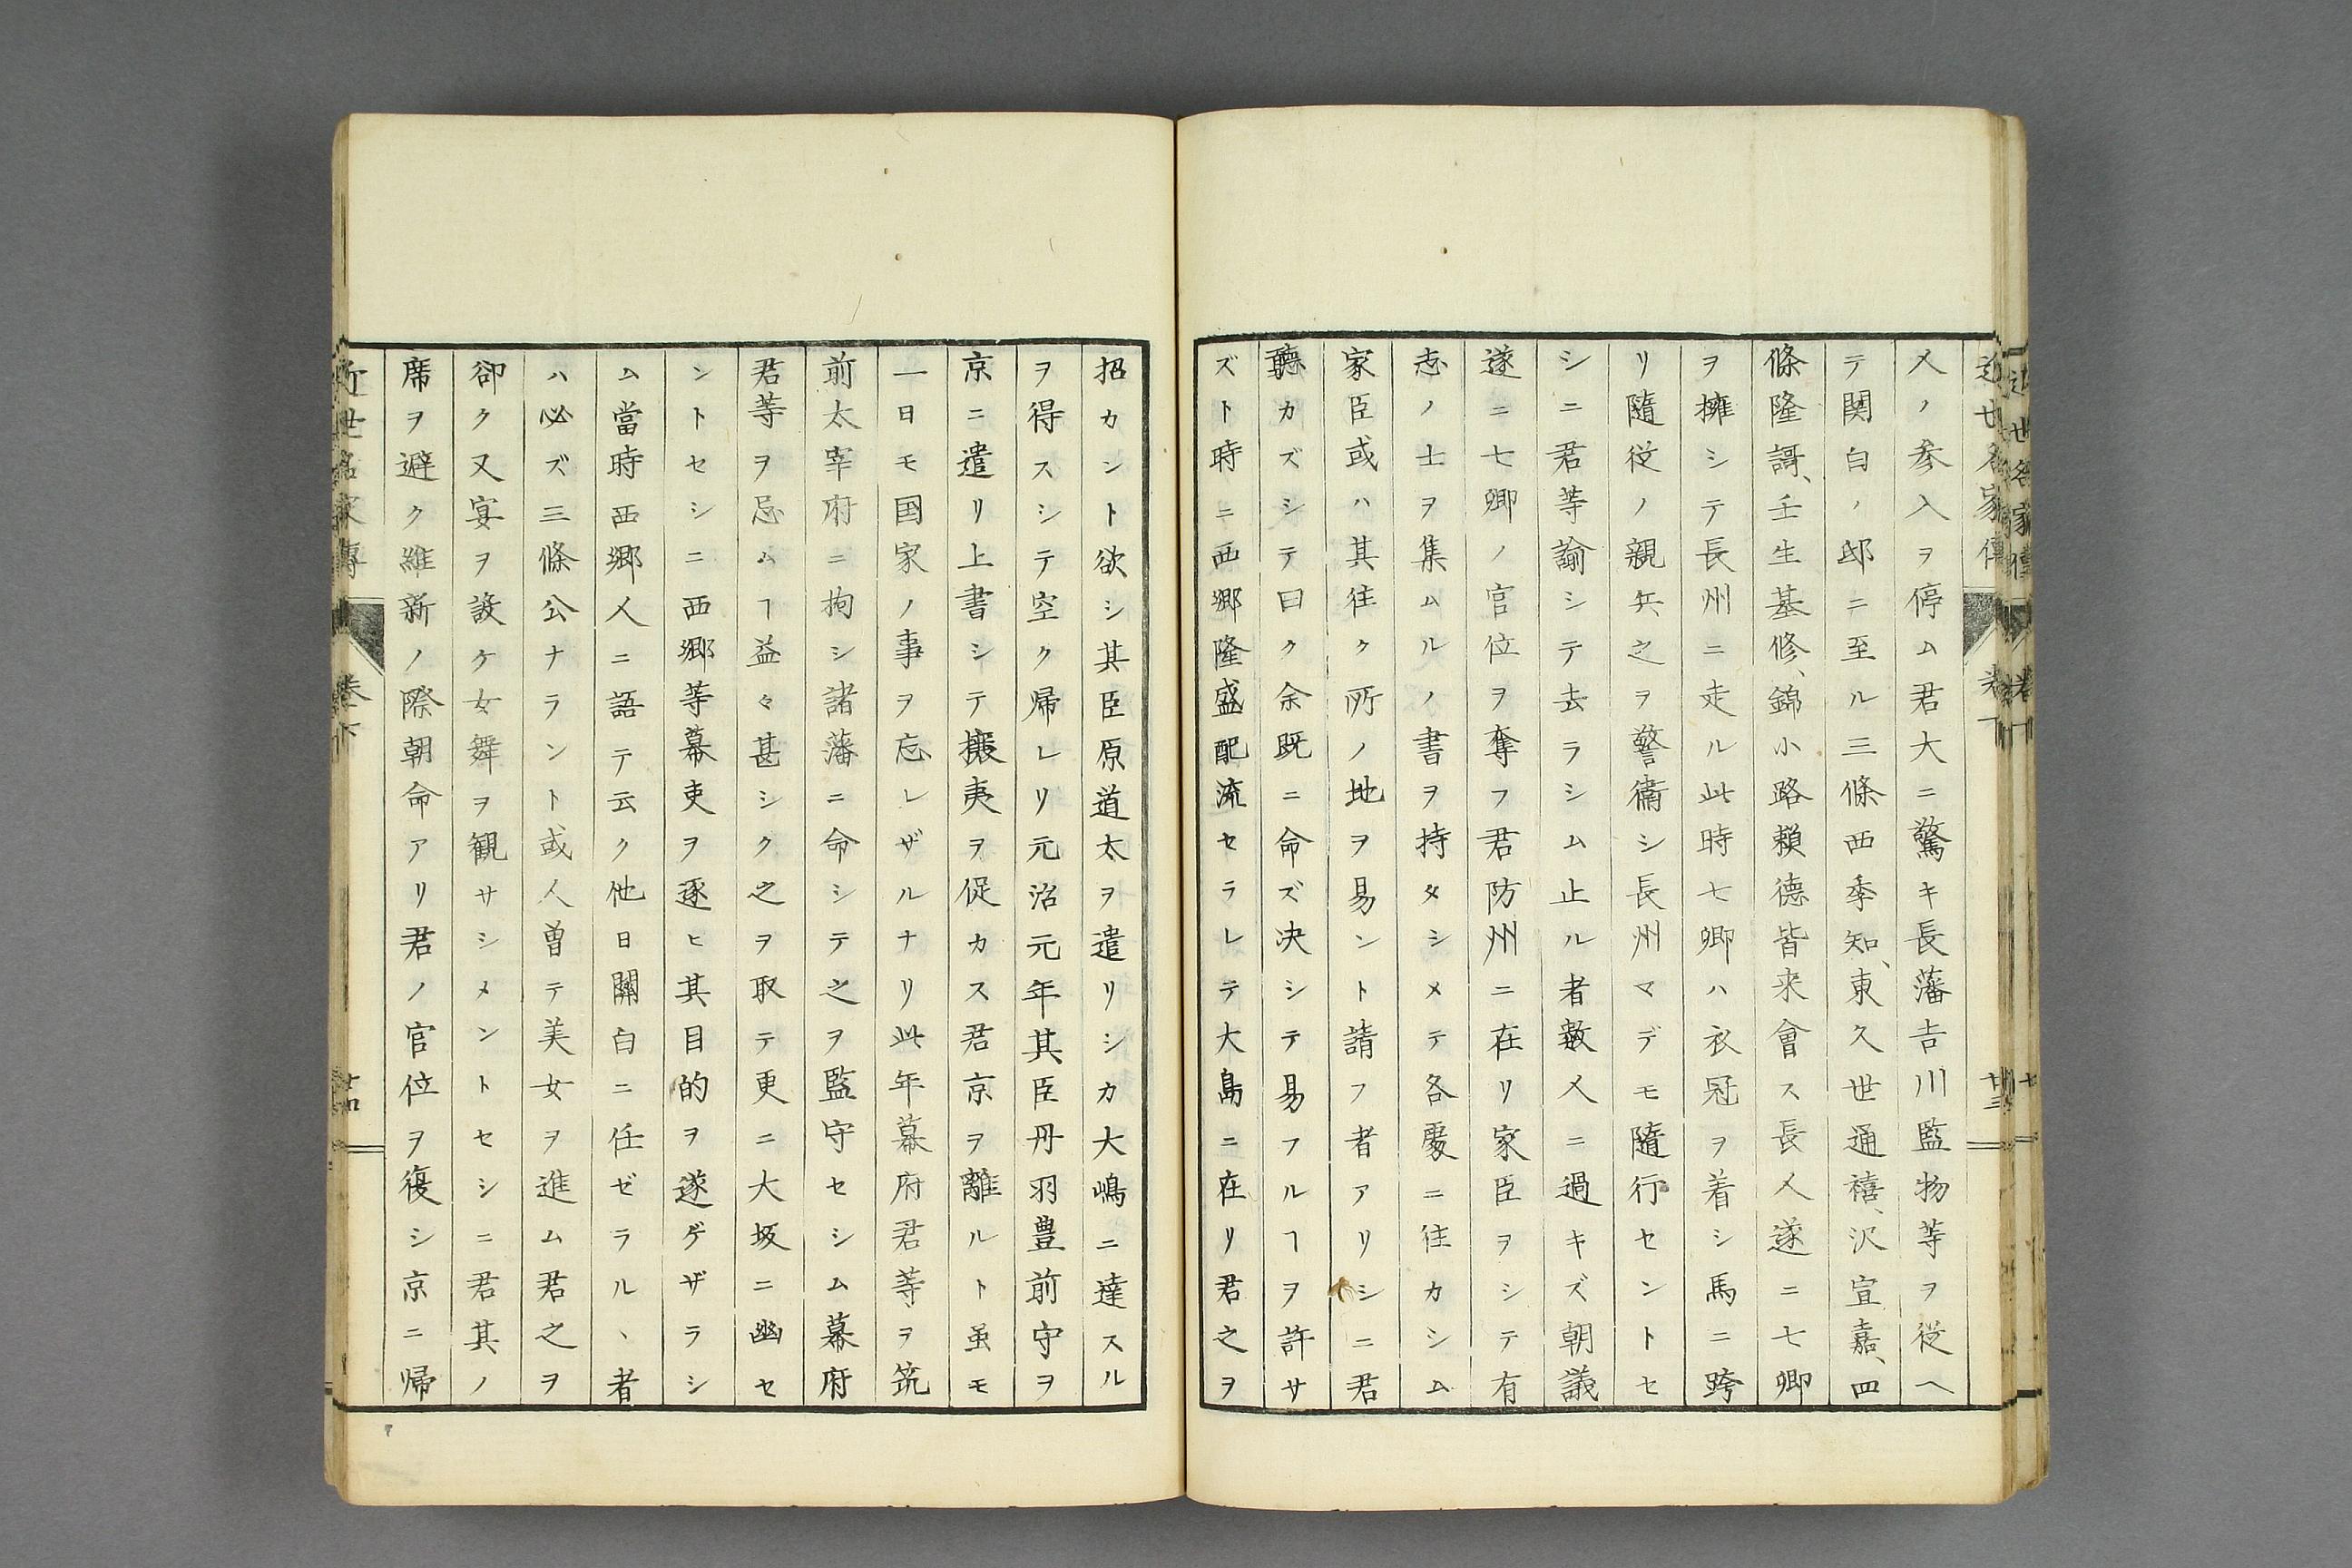 人ノ参入ヲ停ム君大ニ驚キ長藩吉川監物等ヲ従ヘ
テ関白ノ邸ニ至ル三條西季知、東久世通禧、沢宣嘉、四
條隆謌、壬生基修、錦小路頼徳皆来會ス長人遂ニ七卿
ヲ擁シテ長州ニ走ル此時七卿ハ衣冠ヲ着シ馬ニ跨
リ隨従ノ親兵之ヲ警衛シ長州マデモ隨行セントセ
シニ君等諭シテ去ラシム止ル者数人ニ過キズ朝議
遂ニ七卿ノ官位ヲ奪フ君防州ニ在リ家臣ヲシテ有
志ノ士ヲ集ムルノ書ヲ持タシメテ各處ニ往カシム
家臣或ハ其往ク所ノ地ヲ易ント請フ者アリシニ君
聴カズシテ曰ク余既ニ命ズ决シテ易フルヿヲ許サ
ズト時ニ西郷隆盛配流セラレテ大島ニ在リ君之ヲ
招カント欲シ其臣原道太ヲ遣リシカ大嶋ニ達スル
ヲ得スシテ空ク帰レリ元治元年其臣丹羽豊前守ヲ
京ニ遣リ上書シテ攘夷ヲ促カス君京ヲ離ルト虽モ
一日モ国家ノ事ヲ忘レザルナリ此年幕府君等ヲ筑
前太宰府ニ拘シ諸藩ニ命シテ之ヲ監守セシム幕府
君等ヲ忌ムヿ益々甚シク之ヲ取テ更ニ大坂ニ幽セ
ントセシニ西郷等幕吏ヲ逐ヒ其目的ヲ遂ゲザラシ
ム當時西郷人ニ語テ云ク他日關白ニ任ゼラルヽ者
ハ必ズ三條公ナラント或人曽テ美女ヲ進ム君之ヲ
卻ク又宴ヲ設ケ女舞ヲ観サシメントセシニ君其ノ
席ヲ避ク維新ノ際朝命アリ君ノ官位ヲ復シ京ニ帰
近世名家傳 卷下 廿四